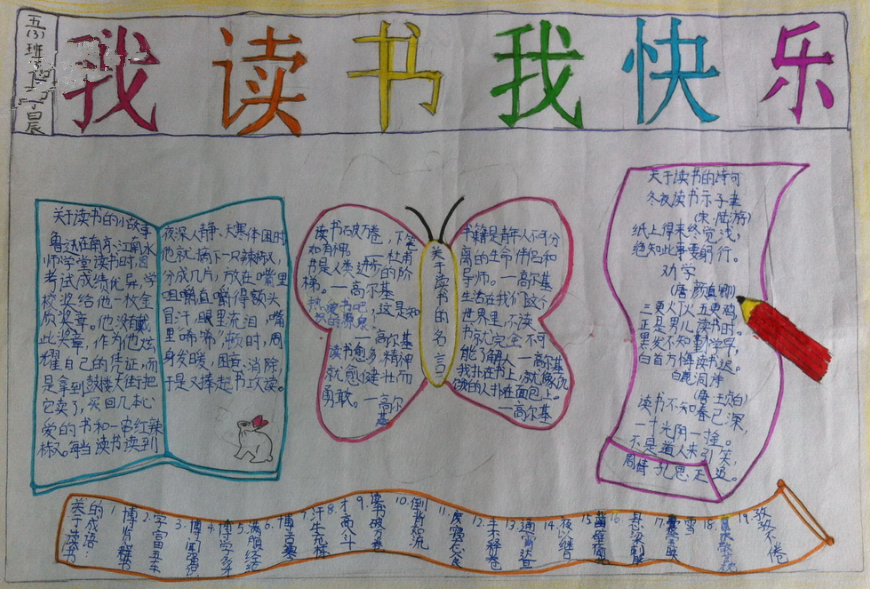 我读书我快乐
五(3)班
关于读书的小故事
鲁迅在南京江南水
师学堂读书时,因
考试成绩优异,学
校奖给他一枚金
质奖章。他没有戴
此奖章,作为他炫
耀自己的凭证,而
是拿到鼓楼大街把
它卖了,买回几本心
爱的书和一串红辣
椒。每当读书读到
夜深人静、天寒体困时
他就摘下一只辣椒,
分成几片,放在嘴里
咀嚼,直嚼得额头
冒汗,眼里流泪,嘴
里唏唏,顿时,周
身发暖,困意消除,
于是又捧起书攻读。
关于读书的名言
读书破万卷,下笔
如有神。一杜甫
书是人类进步的阶
梯。一高尔基
这是知
一高尔基
读书愈多,精神
就愈健壮而
勇敢。一高尔
基
书籍是青年人不可分
离的生命伴侣和
导师。一高尔基
生活在我们这个
世界里,不读
书就完全不可
能了解人。一高尔基
我扑在书上,就像饥
饿的人扑在面包上。
一高尔基
关于读书的诗句
冬夜读书示子聿
(宋·陆游)
纸上得来终觉浅,
绝知此事要躬行。
劝学
(唐·颜真卿)
三更灯火五更鸡,
正是男儿读书时。
黑发不知勤学早,
白首方悔读书迟。
白鹿洞诗
(唐·王贞白)
读书不知春已深,
一寸光阴一寸金。
不是道人来引笑,
周情孔思正追。
关于读书的成语:
1.博览群书
2.学富五车
3.博闻强识
4.博学多才
5.满腹经纶
6.博古通今
7.汗牛充栋
8.才高八斗
9.读书破万卷
10.倒背如流
11.废寝忘食
12.手不释卷
13.通宵达旦
14.夜以继日
15.凿壁偷光
16.悬梁刺股
17.囊萤映雪
18.
19.孜孜不倦